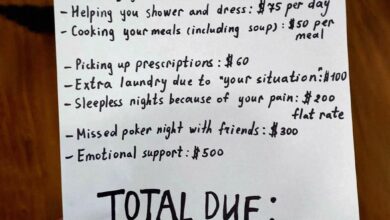 - Helping you shower and dress: $75 per day
- Cooking your meals (including soup): $50 per
meal
- Picking up prescriptions: $60
- Extra laundry due to "your situation": $100
- Sleepless nights because of your pain: $200
flat rate
- Missed poker night with friends: $300
- Emotional support: $500
TOTAL DUE: